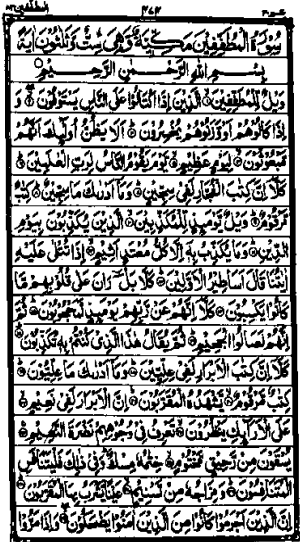 ٤٧٤
سُورَةُ الْمُطَفِّفِيْنَ مَكِّيَّةٌ وَّهِيَ سِتٌّ وَّثَلٰثُوْنَ اٰيَةً
بِسْمِ اللّٰهِ الرَّحْمٰنِ الرَّحِيْمِ
وَيْلٌ لِّلْمُطَفِّفِيْنَ۝ الَّذِيْنَ اِذَا اكْتَالُوْا عَلَى النَّاسِ يَسْتَوْفُوْنَ۝ وَ
اِذَا كَالُوْهُمْ اَوْ وَّزَنُوْهُمْ يُخْسِرُوْنَ۝ اَلَا يَظُنُّ اُولٰٓئِكَ اَنَّهُمْ
مَّبْعُوْثُوْنَ۝ لِيَوْمٍ عَظِيْمٍ۝ يَّوْمَ يَقُوْمُ النَّاسُ لِرَبِّ الْعٰلَمِيْنَ۝
كَلَّآ اِنَّ كِتٰبَ الْفُجَّارِ لَفِيْ سِجِّيْنٍ۝ وَمَآ اَدْرٰىكَ مَا سِجِّيْنٌ۝ كِتٰبٌ
مَّرْقُوْمٌ۝ وَيْلٌ يَّوْمَئِذٍ لِّلْمُكَذِّبِيْنَ۝ الَّذِيْنَ يُكَذِّبُوْنَ بِيَوْمِ
الدِّيْنِ۝ وَمَا يُكَذِّبُ بِهٖٓ اِلَّا كُلُّ مُعْتَدٍ اَثِيْمٍ۝ اِذَا تُتْلٰى عَلَيْهِ
اٰيٰتُنَا قَالَ اَسَاطِيْرُ الْاَوَّلِيْنَ۝ كَلَّا بَلْ رَانَ عَلٰى قُلُوْبِهِمْ مَّا
كَانُوْا يَكْسِبُوْنَ۝ كَلَّآ اِنَّهُمْ عَنْ رَّبِّهِمْ يَوْمَئِذٍ لَّمَحْجُوْبُوْنَ۝ ثُمَّ
اِنَّهُمْ لَصَالُوا الْجَحِيْمِ۝ ثُمَّ يُقَالُ هٰذَا الَّذِيْ كُنْتُمْ بِهٖ تُكَذِّبُوْنَ۝
كَلَّآ اِنَّ كِتٰبَ الْاَبْرَارِ لَفِيْ عِلِّيِّيْنَ۝ وَمَآ اَدْرٰىكَ مَا عِلِّيُّوْنَ۝
كِتٰبٌ مَّرْقُوْمٌ۝ يَّشْهَدُهُ الْمُقَرَّبُوْنَ۝ اِنَّ الْاَبْرَارَ لَفِيْ نَعِيْمٍ۝
عَلَى الْاَرَآئِكِ يَنْظُرُوْنَ۝ تَعْرِفُ فِيْ وُجُوْهِهِمْ نَضْرَةَ النَّعِيْمِ۝
يُسْقَوْنَ مِنْ رَّحِيْقٍ مَّخْتُوْمٍ۝ خِتٰمُهٗ مِسْكٌ وَفِيْ ذٰلِكَ فَلْيَتَنَافَسِ
الْمُتَنَافِسُوْنَ۝ وَمِزَاجُهٗ مِنْ تَسْنِيْمٍ۝ عَيْنًا يَّشْرَبُ بِهَا الْمُقَرَّبُوْنَ۝
اِنَّ الَّذِيْنَ اَجْرَمُوْا كَانُوْا مِنَ الَّذِيْنَ اٰمَنُوْا يَضْحَكُوْنَ۝ وَاِذَا مَرُّوْا